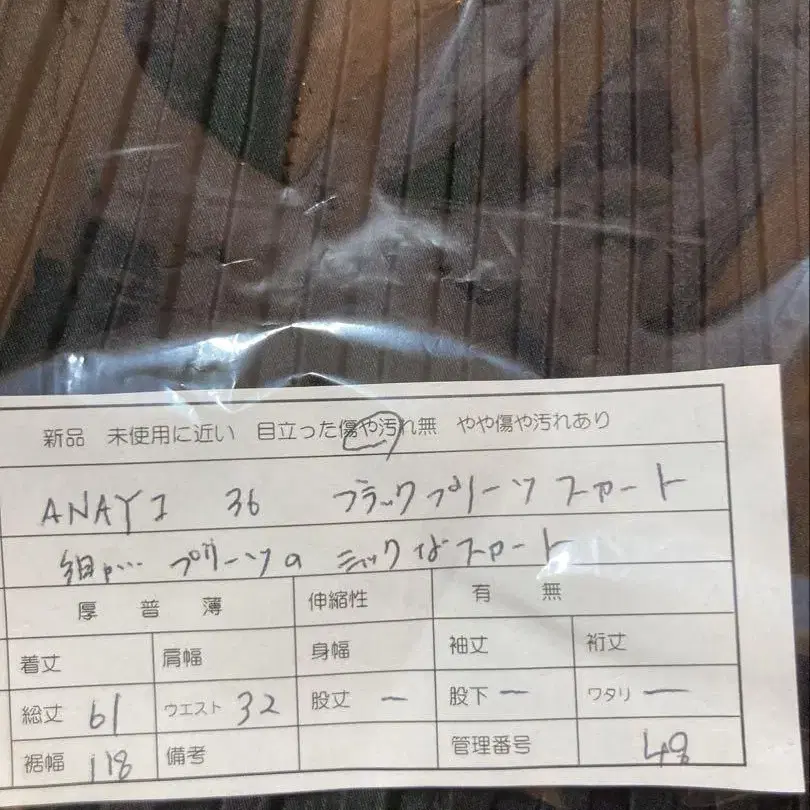 新品 未使用に近い 目立った傷や汚れ無 やや傷や汚れあり
ANAYI 36 ブラックプリーツスカート
細かいプリーツのシックなスカート
厚 普 薄 伸縮性 有 無
着丈 肩幅 身幅 袖丈 裄丈
総丈 61 ウエスト 32 股丈 ー 股下 ー ワタリ ー
裾幅 118 備考 管理番号 48